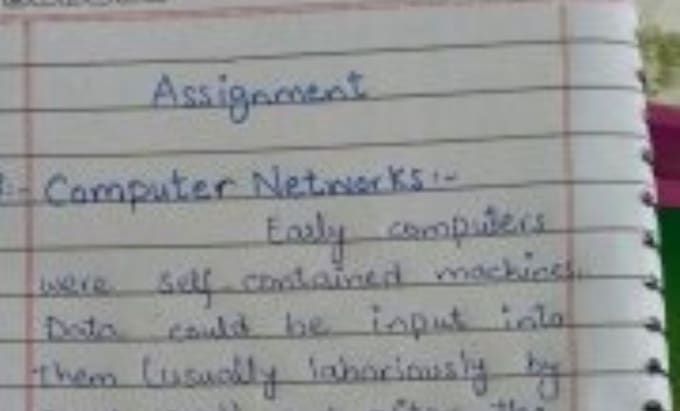 Assignment
:- Computer Networks :-
Early computers
were self contained machines.
Data could be input into
them (usually laboriously by